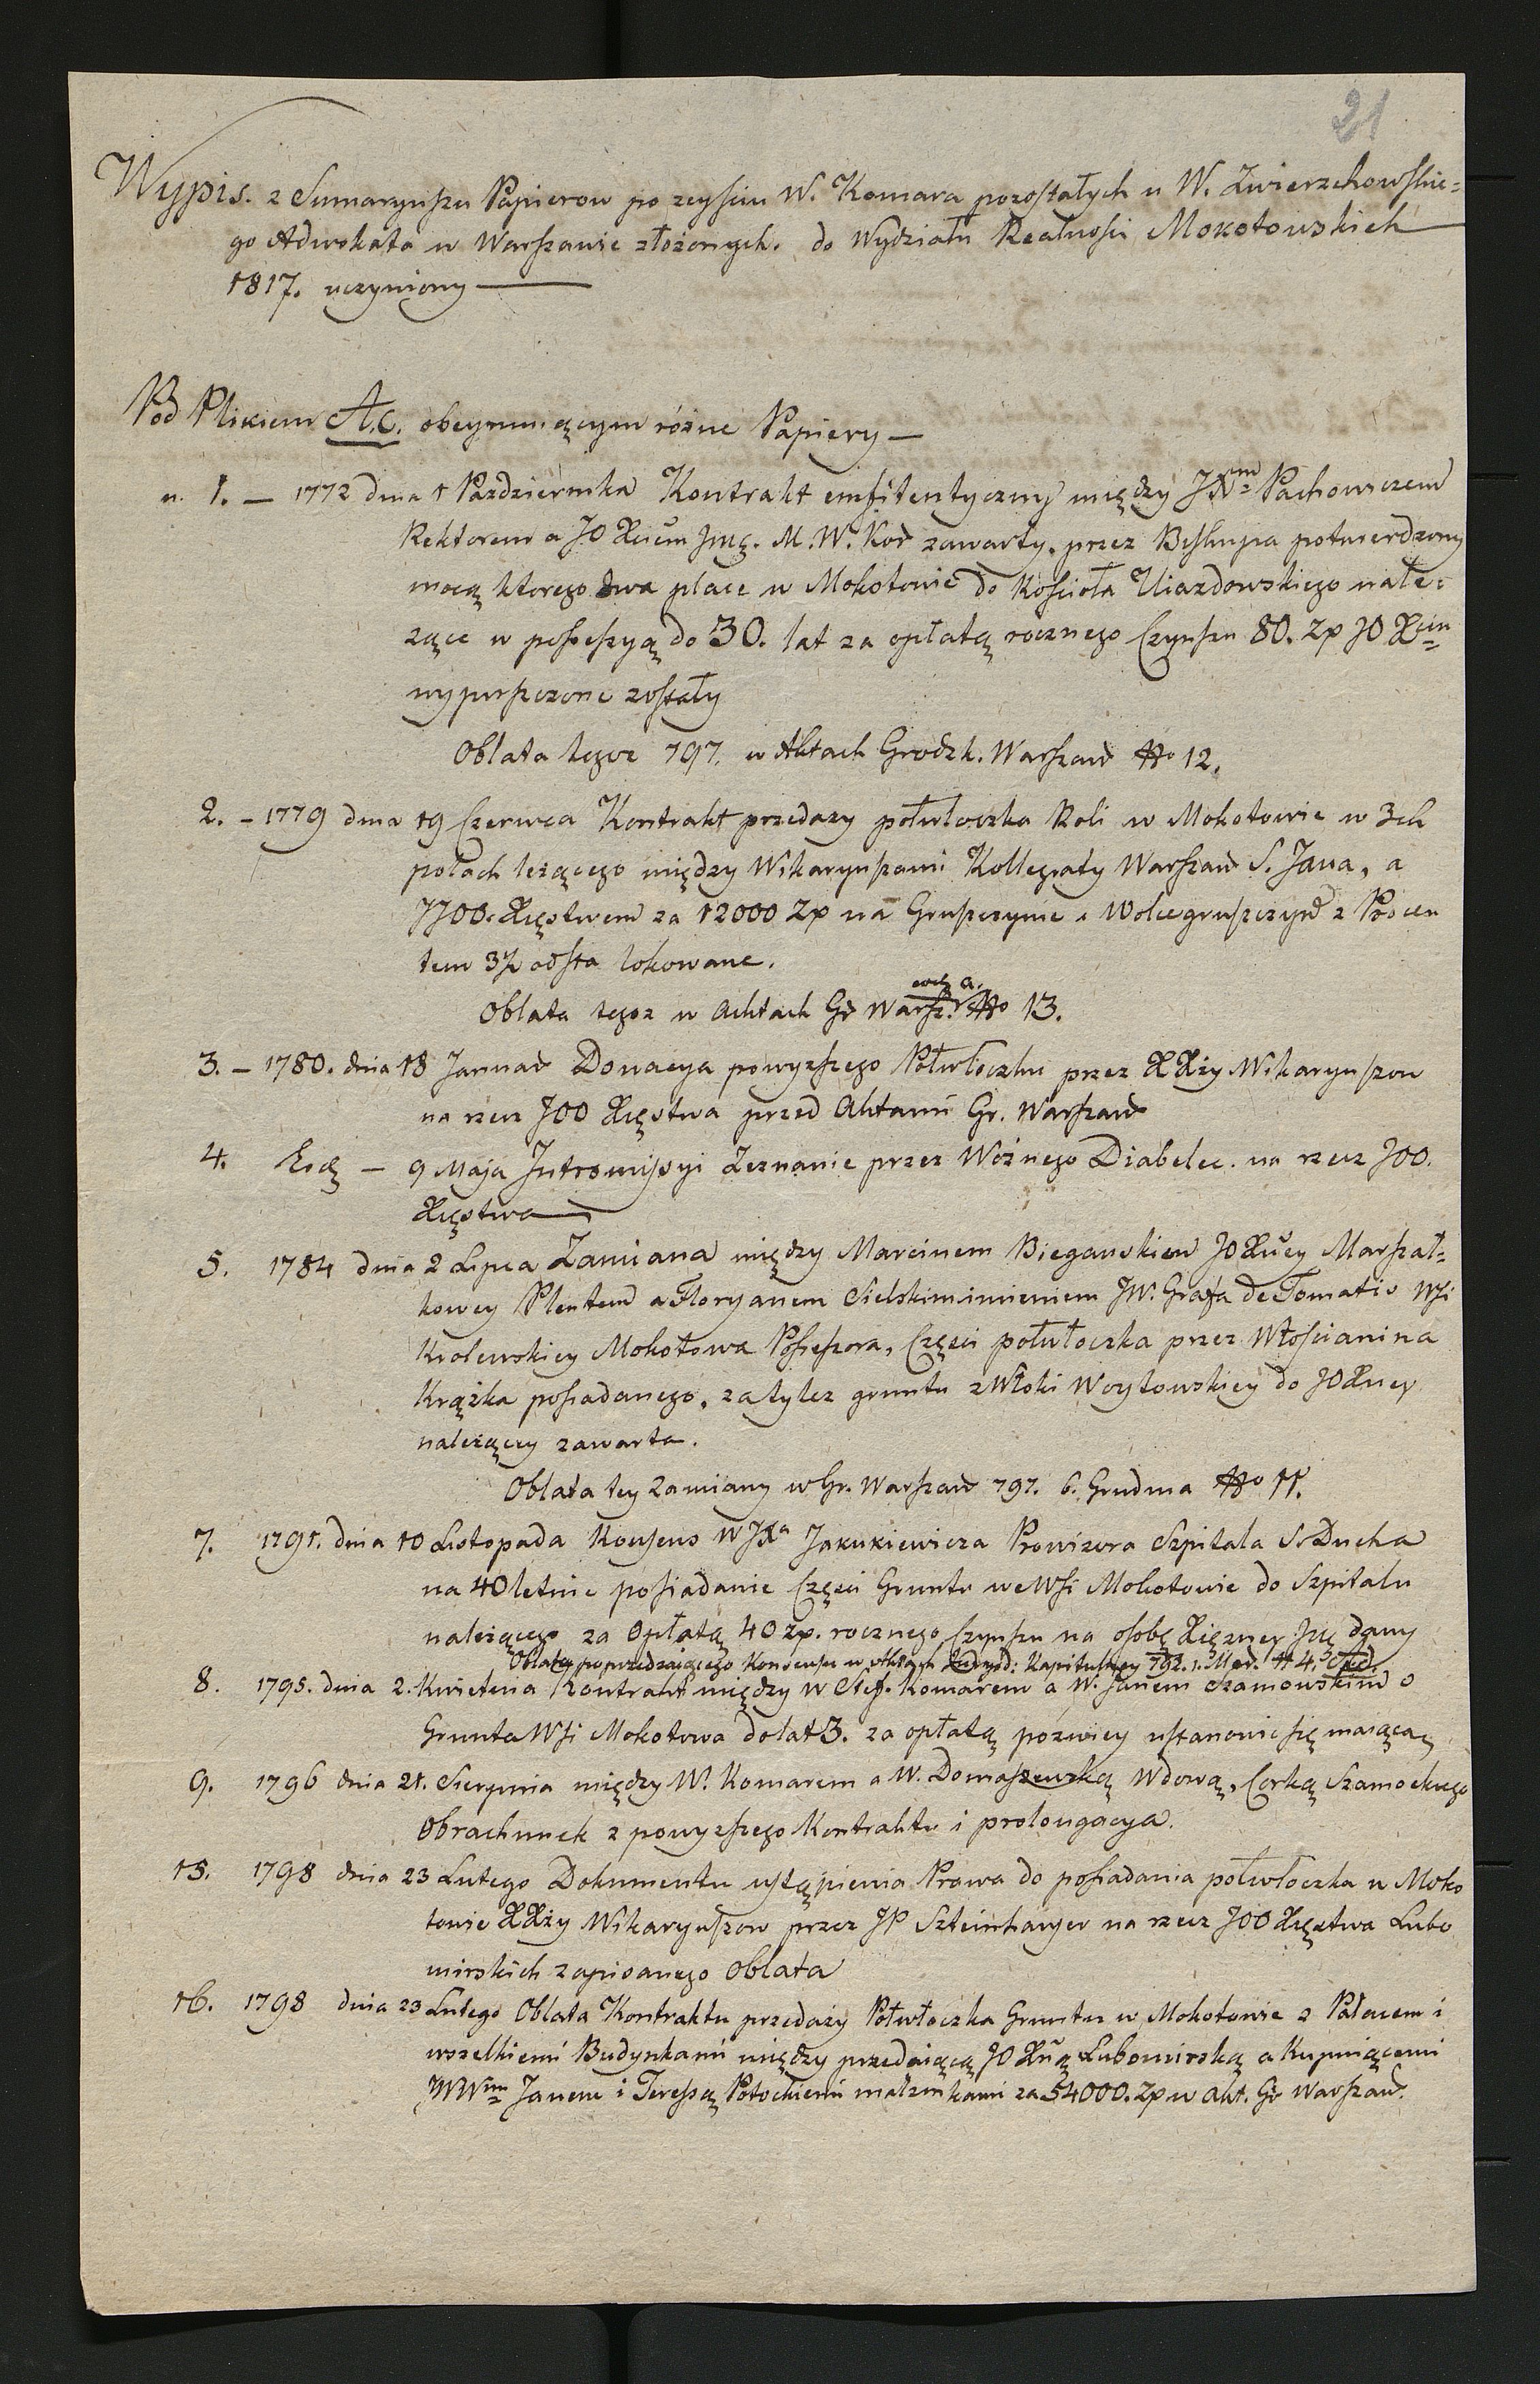 21
Wypis. z Sumaryuszu Papierow po zeysciu W. Komara pozostałych u W. Zwierzchowskie=
go Adwokata w Warszawie złożonych. do Wydziału Realności Mokotowskich
1817. uczyniony
Pod Plikiem A.C. obeymuiącym różne Papiery —
n. 1. — 1772 dnia 1 Pazdziernika Kontrakt emfiteutyczny między JX Pachowiczem
Rektorem a JO Xciem Jmę. M. W. Kor zawarty. przez Biskupa potwierdzony
mocą ktorego dwa place w Mokotowie do Kościoła Uiazdowskiego nale=
zące w possessyą do 30. lat za opłatą rocznego Czynszu 80. zp JO Xciu
wypuszczone zostały
Oblata tegoz 797. w Aktach Grodzk. Warszaw No 12.
2. – 1779 dnia 19 Czerwca Kontrakt przedazy połwłoczka Roli w Mokotowie w 3ch
polach leżącego między Wikaryuszami Kollegiaty Warszaw S. Jana, a
JJOO. Xięstwem za 12000 Zp na Gruszczynie i Wolcegruszczynd z Procen
tem 3½ od sta lokowane.
eod. a.
Oblata tegoz w Achtach Gr Warsz. No 13.
3. – 1780. dnia 18 Januar Donacya powyższego Połwłoczku przez XXży Wikaryuszow
na rzecz JOO Xięstwa przed Aktami Gr. Warszaw
4. Eod — 9 Maja Intromissyi Zeznanie przez Woźnego Diabelec. na rzecz JOO.
Xięstwa
5. 1784 dnia 2 Lipca Zamiana między Marcinem Biegańskiem JOXney Marszał-
kowey Plentem a Floryanem Sielskim imieniem JW. Grafa de Tomatis Wsi
Krolewskiey Mokotowa Possessora, Części połwłoczka przez Włościanina
Krążka posiadanego, za tylez gruntu z Włoki Woytowskiey do JOXney
należącey zawarta.
Oblata tey Zamiany w Gr. Warszaw 797. 6. Grudnia No 11.
7. 1791. dnia 10 Listopada Konsens WJXa Jakukiewicza Prowizora Szpitala S. Ducha
na 40 letnie posiadanie Części Gruntu we Wsi Mokotowie do Szpitalu
należącego za Opłatą 40 zp. rocznego Czynszu na osobę Xiężney Jmę dany
Oblata poprzedzaiącego Konsensu w Aktach Kapitulney 792. 1. Mar. 4.
8. 1795. dnia 2. Kwietnia Kontrakt między W Stef. Komarem a W. Janem Szamowskim o
Grunta Wsi Mokotowa do lat 3. za opłatą pozniey ustanowić się maiącą
9. 1796 dnia 21. Sierpnia między W. Komarem a W. Domaszewską Wdową, Corką Szamockiego
Obrachunek z powyższego Kontraktu i prolongacya.
15. 1798 dnia 23 Lutego Dokumentu ustąpienia Prawa do posiadania połwłoczka w Moko
towie XXży Wikaryuszow przez JP Szteinhauyer na rzecz JOO Xięstwa Lubo
mirskich zapisanego Oblata
16. 1798 dnia 23 Lutego Oblata Kontraktu przedaży Połwłoczka Gruntu w Mokotowie z Pałacem i
wszelkiemi Budynkami między przedaiącą JO Xną Lubomirską a Kupuiącemi
WW Janem i Teressą Potockiemi małzonkami za 54000. Zp w Akt. Gr Warszaw.